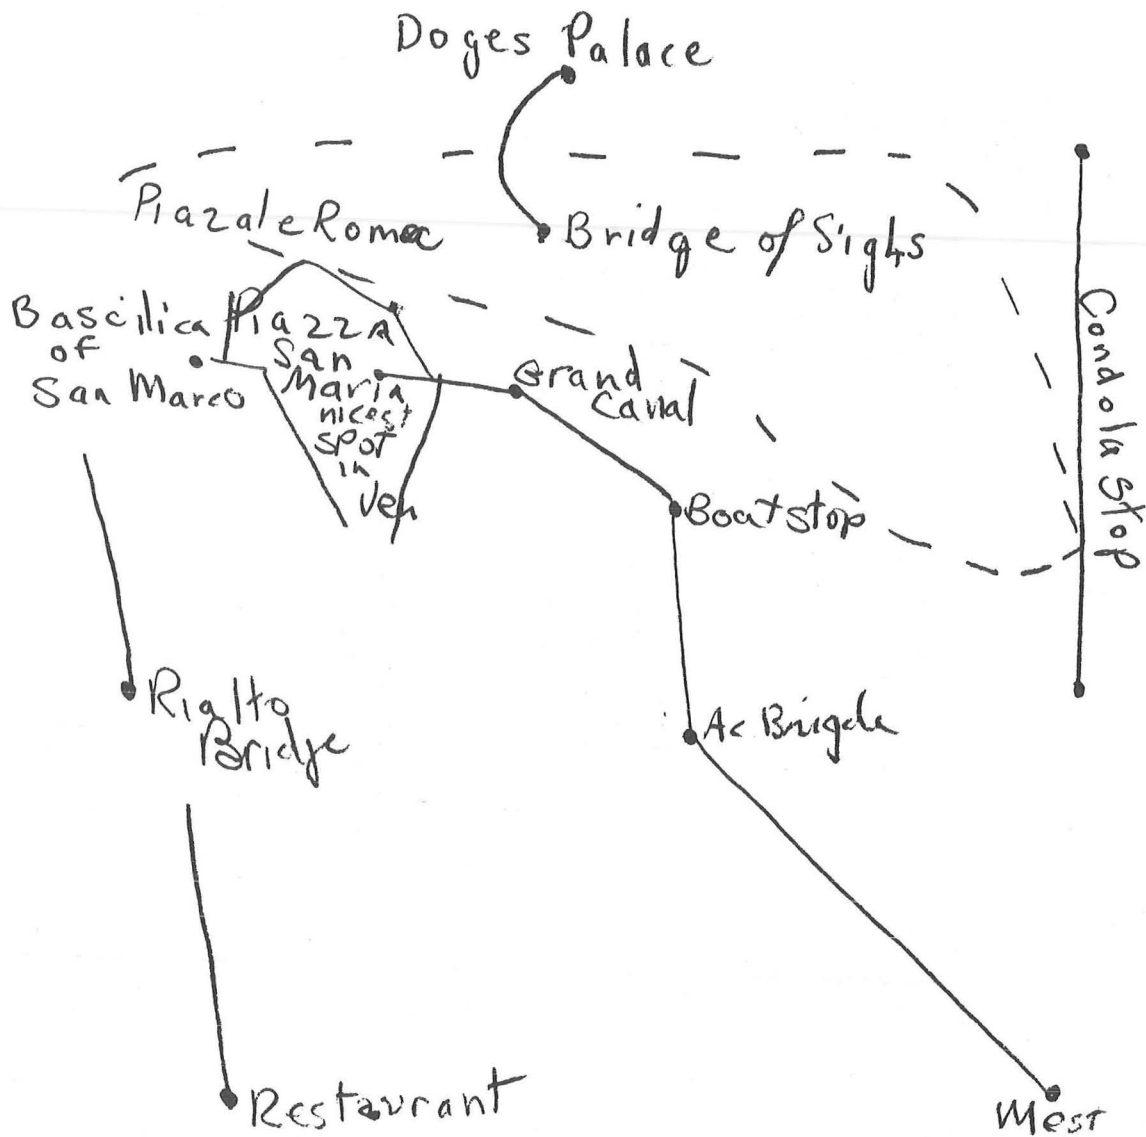 Doges Palace
Piazale Romec
Bridge of Sighs
Bascilica
of
San Marco
Piazza
San
Maria
nicest
spot
in
Ven
Grand
Canal
Condola Stop
Boat stop
Rialto
Bridge
Ac Brigde
Restaurant
Mest